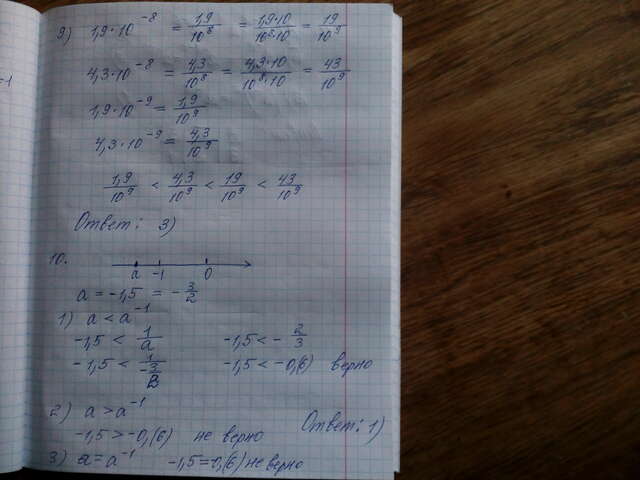 -1
9) 1,9·10^-8 = 1,9/10^8 = 1,9·10/10^8·10 = 19/10^9
4,3·10^-8 = 4,3/10^8 = 4,3·10/10^8·10 = 43/10^9
1,9·10^-9 = 1,9/10^9
4,3·10^-9 = 4,3/10^9
1,9/10^9 < 4,3/10^9 < 19/10^9 < 43/10^9
Ответ: 3)
10.
a -1 0
a = -1,5 = -3/2
1) a < a^-1
-1,5 < 1/a -1,5 < -2/3
-1,5 < 1/-3/2 -1,5 < -0,(6) верно
2) a > a^-1
-1,5 > -0,(6) не верно Ответ: 1)
3) a = a^-1 -1,5 = 0,(6) не верно